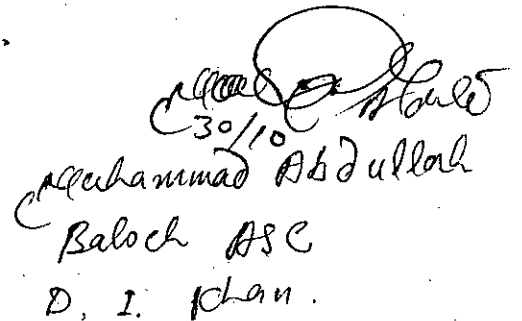 30/10
Muhammad Abdullah
Baloch ASC
D. I. Khan.